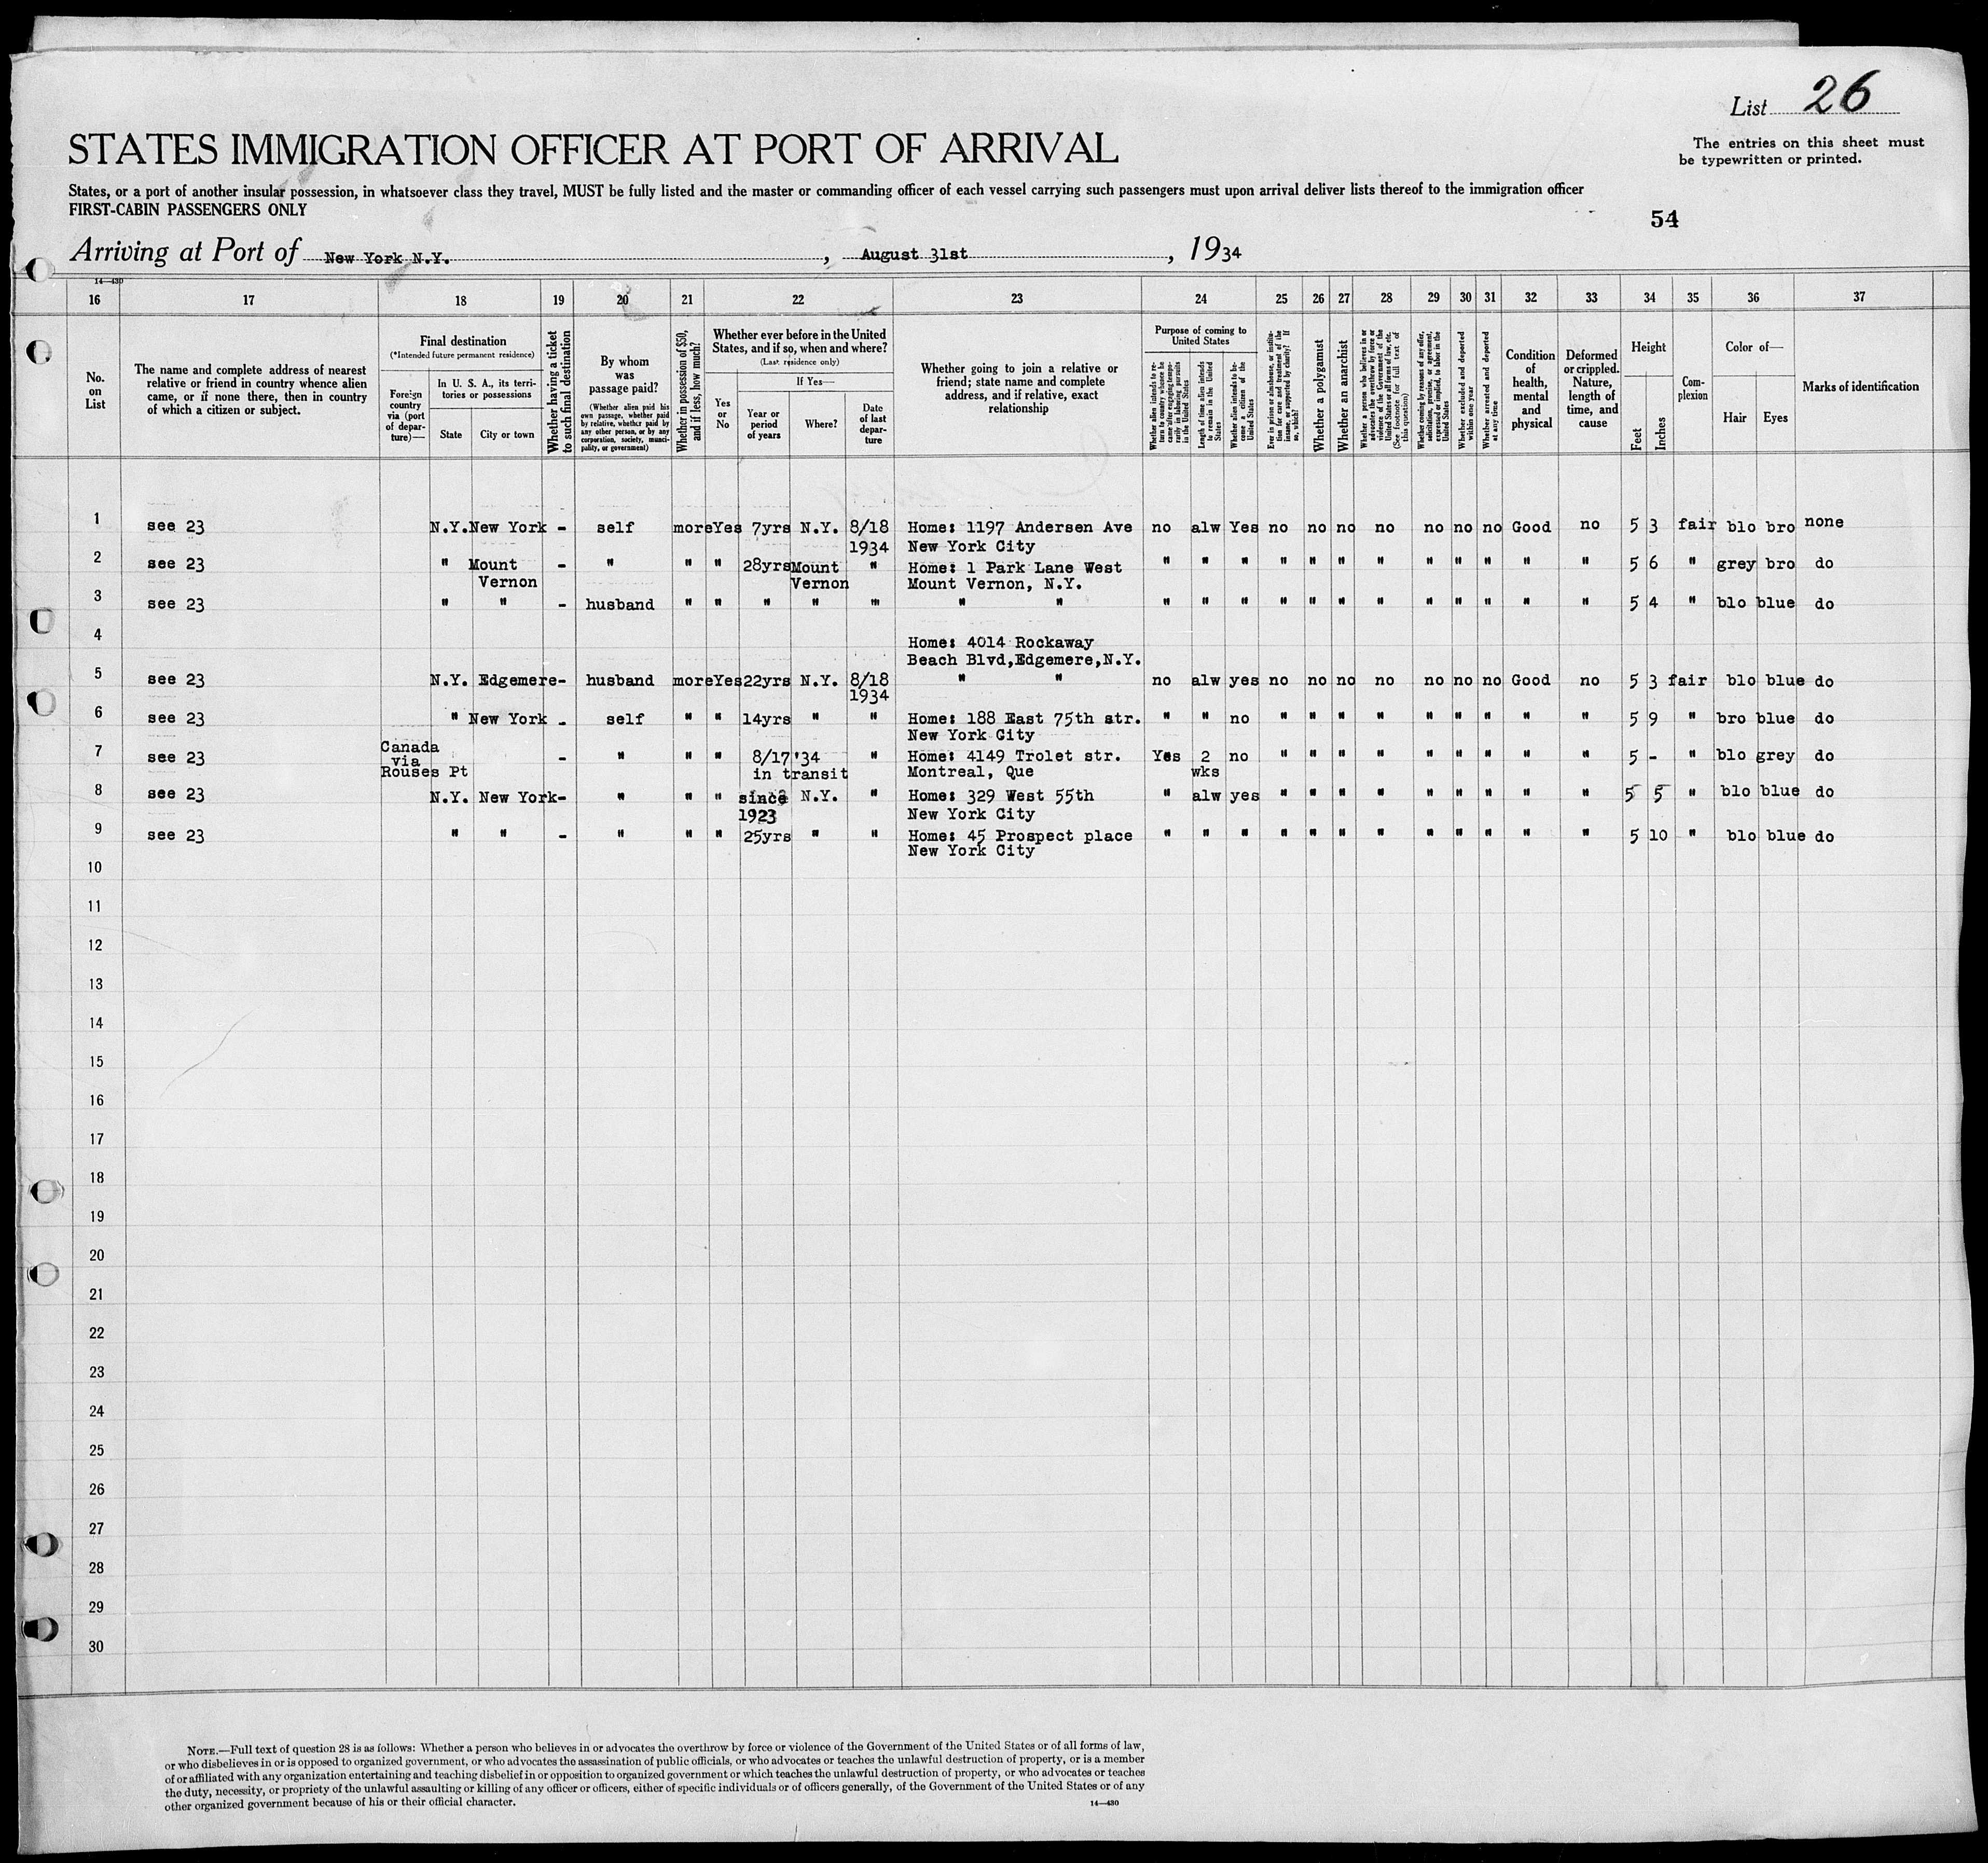 List 26
The entries on this sheet must
be typewritten or printed.
STATES IMMIGRATION OFFICER AT PORT OF ARRIVAL
States, or a port of another insular possession, in whatsoever class they travel, MUST be fully listed and the master or commanding officer of each vessel carrying such passengers must upon arrival deliver lists thereof to the immigration officer
FIRST-CABIN PASSENGERS ONLY
54
Arriving at Port of New York N.Y. , August 31st , 1934
14—430
16 17 18 19 20 21 22 23 24 25 26 27 28 29 30 31 32 33 34 35 36 37
No.
on
List
The name and complete address of nearest
relative or friend in country whence alien
came, or if none there, then in country
of which a citizen or subject.
Final destination
(*Intended future permanent residence)
Foreign
country
via (port
of depar-
ture)—
In U. S. A., its terri-
tories or possessions
State City or town
Whether having a ticket
to such final destination
By whom
was
passage paid?
(Whether alien paid his
own passage, whether paid
by relative, whether paid by
any other person, or by any
corporation, society, munici-
pality, or government)
Whether in possession of $50,
and if less, how much?
Whether ever before in the United
States, and if so, when and where?
(Last residence only)
If Yes—
Yes
or
No
Year or
period
of years
Where?
Date
of last
depar-
ture
Whether going to join a relative or
friend; state name and complete
address, and if relative, exact
relationship
Purpose of coming to
United States
Whether alien intends to re-
turn to country whence he
came after engaging tempo-
rarily in laboring pursuits
in the United States
Length of time alien intends
to remain in the United
States
Whether alien intends to be-
come a citizen of the
United States
Ever in prison or almshouse, or institu-
tion for care and treatment of the
insane, or supported by charity? If
so, which?
Whether a polygamist
Whether an anarchist
Whether a person who believes in or
advocates the overthrow by force or
violence of the Government of the
United States or all forms of law, etc.
(See footnote for full text of
this question)
Whether coming by reasons of any offer,
solicitation, promise, or agreement,
expressed or implied, to labor in the
United States
Whether excluded and deported
within one year
Whether arrested and deported
at any time
Condition
of
health,
mental
and
physical
Deformed
or crippled.
Nature,
length of
time, and
cause
Height
Feet
Inches
Com-
plexion
Color of—
Hair Eyes
Marks of identification
1 see 23 N.Y. New York - self more Yes 7yrs N.Y. 8/18 Home: 1197 Andersen Ave no alw Yes no no no no no no no Good no 5 3 fair blo bro none
1934 New York City
2 see 23 " Mount - " " " 28yrs Mount " Home: 1 Park Lane West " " " " " " " " " " " " 5 6 " grey bro do
Vernon Vernon Mount Vernon, N.Y.
3 see 23 " " - husband " " " " " " " " " " " " " " " " " " " 5 4 " blo blue do
4 Home: 4014 Rockaway
Beach Blvd, Edgemere, N.Y.
5 see 23 N.Y. Edgemere - husband more Yes 22yrs N.Y. 8/18 " " no alw yes no no no no no no no Good no 5 3 fair blo blue do
1934
6 see 23 " New York - self " " 14yrs " " Home: 188 East 75th str. " " no " " " " " " " " " 5 9 " bro blue do
New York City
7 see 23 Canada - " " " 8/17 '34 " Home: 4149 Trolet str. Yes 2 no " " " " " " " " " 5 - " blo grey do
via
Rouses Pt in transit Montreal, Que wks
8 see 23 N.Y. New York - " " " since N.Y. " Home: 329 West 55th " alw yes " " " " " " " " " 5 5 " blo blue do
1923 New York City
9 see 23 " " - " " " 25yrs " " Home: 45 Prospect place " " " " " " " " " " " " 5 10 " blo blue do
New York City
10
11
12
13
14
15
16
17
18
19
20
21
22
23
24
25
26
27
28
29
30
NOTE.—Full text of question 28 is as follows: Whether a person who believes in or advocates the overthrow by force or violence of the Government of the United States or of all forms of law,
or who disbelieves in or is opposed to organized government, or who advocates the assassination of public officials, or who advocates or teaches the unlawful destruction of property, or is a member
of or affiliated with any organization entertaining and teaching disbelief in or opposition to organized government or which teaches the unlawful destruction of property, or who advocates or teaches
the duty, necessity, or propriety of the unlawful assaulting or killing of any officer or officers, either of specific individuals or of officers generally, of the Government of the United States or of any
other organized government because of his or their official character.
14—430